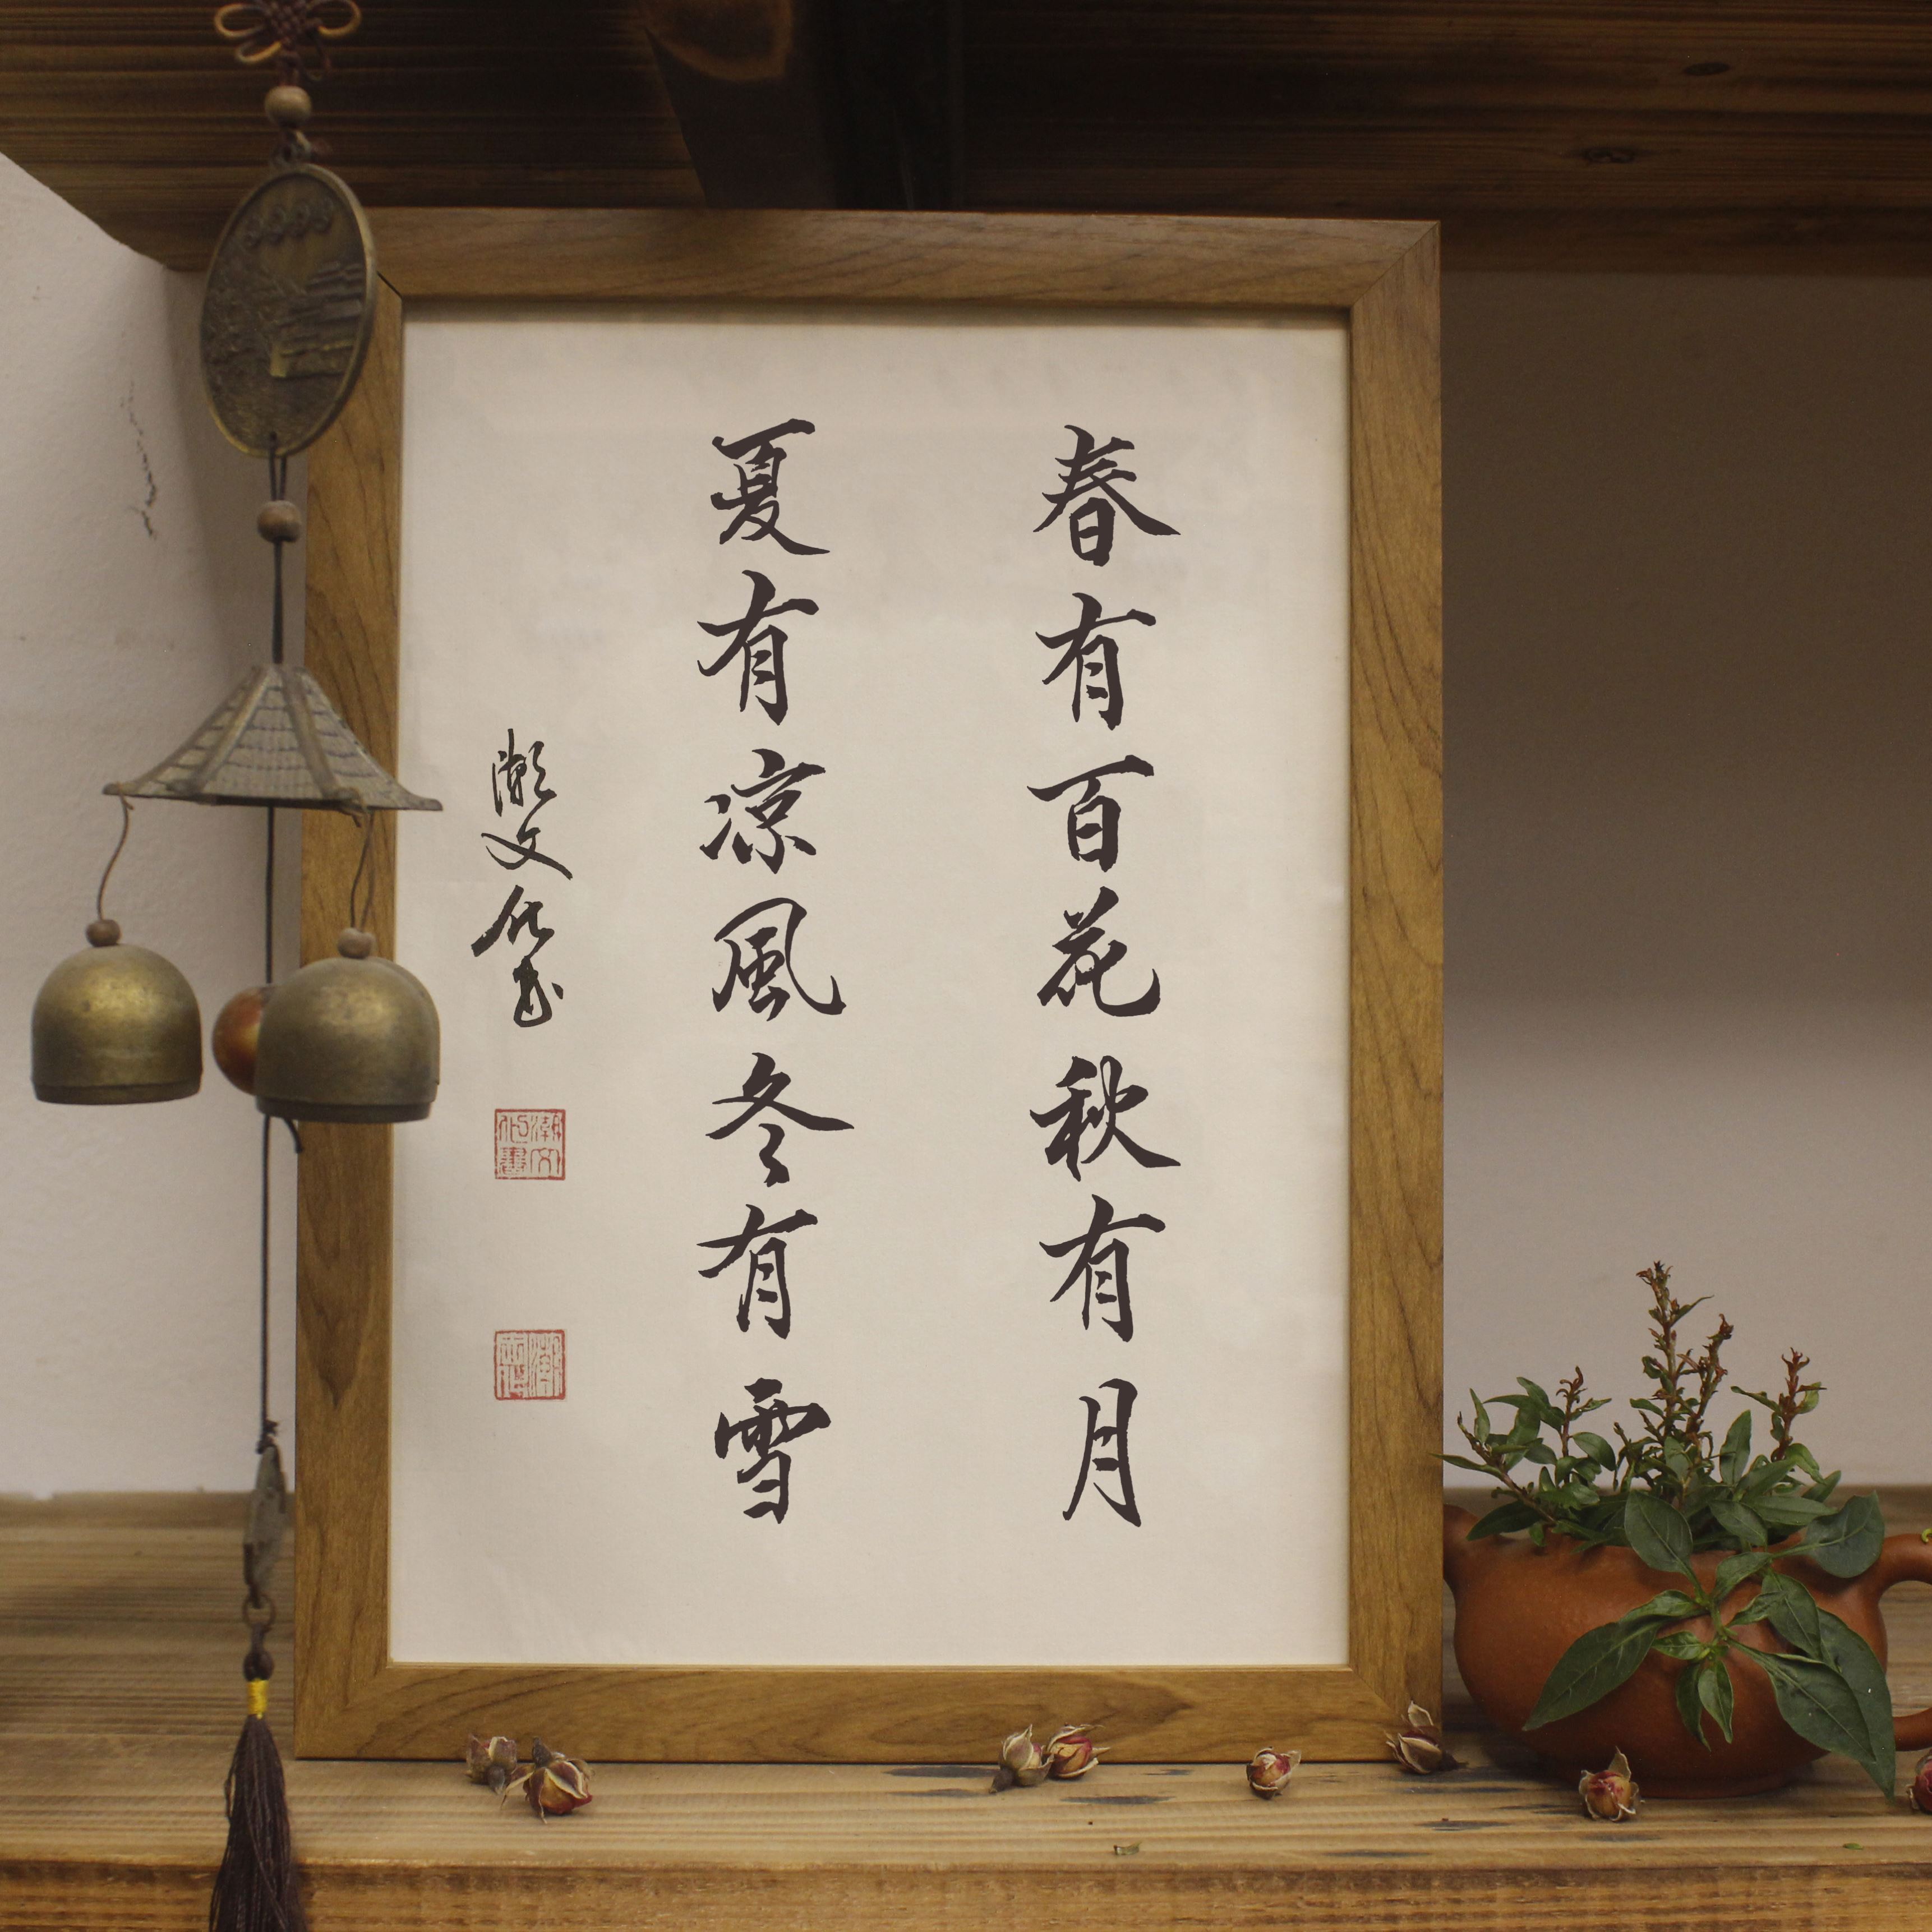 春有百花秋有月
夏有凉風冬有雪
潮文化書